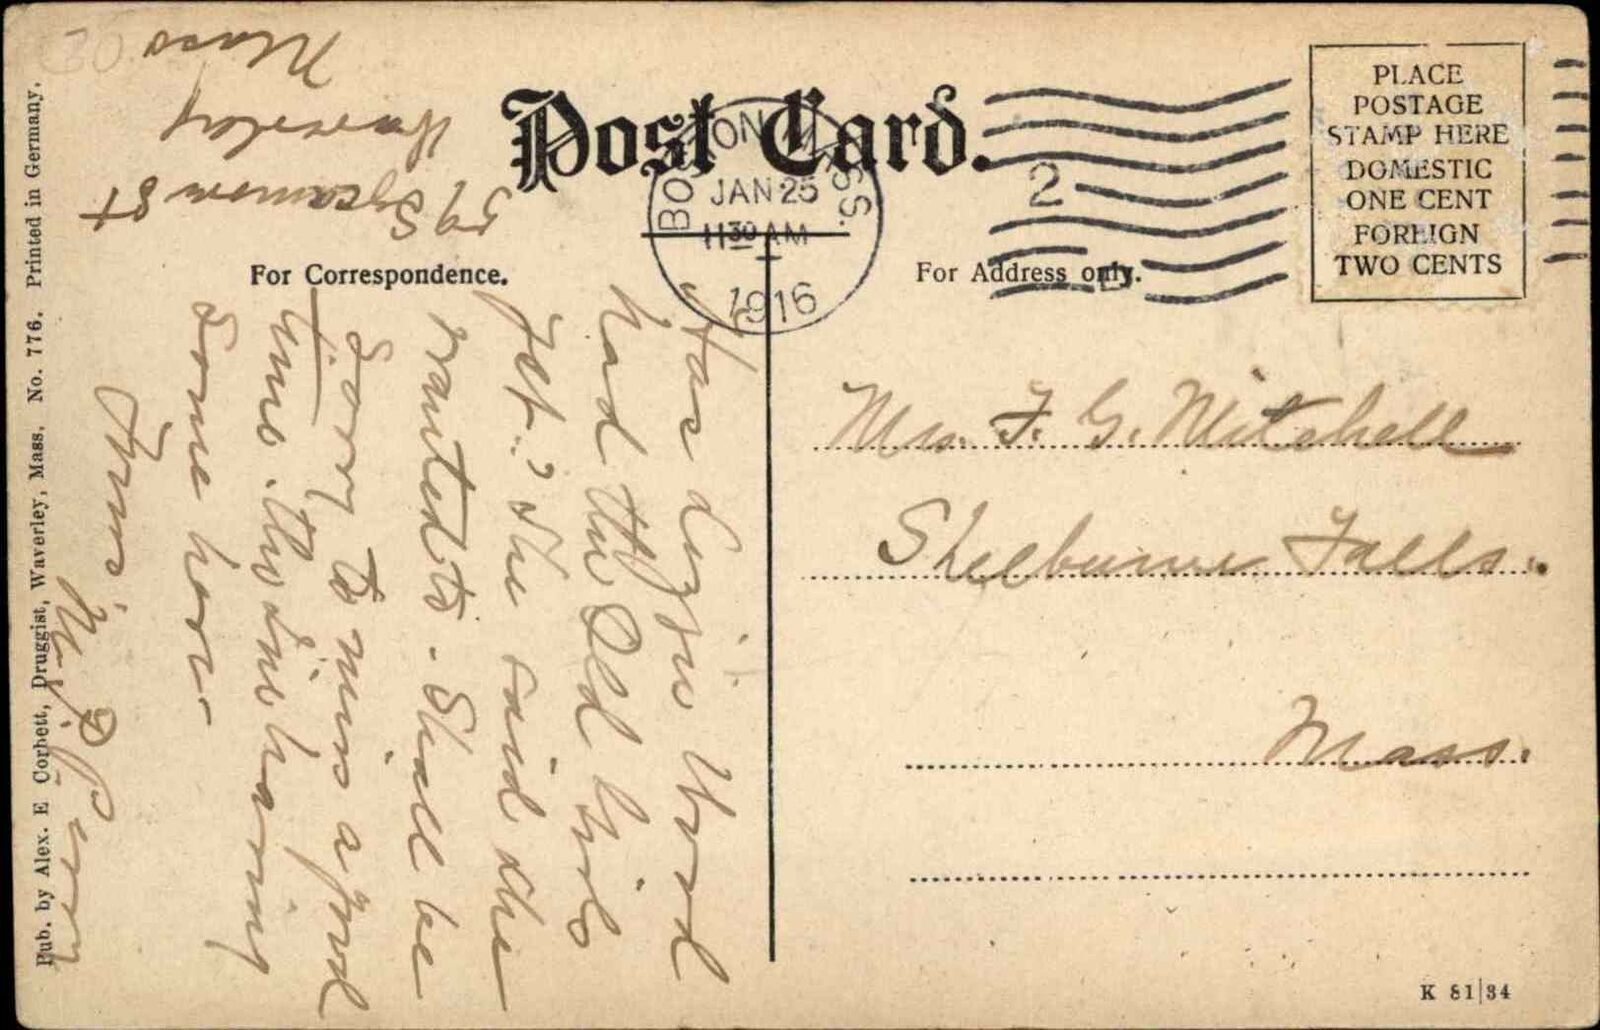 Post Card.
BOSTON MASS.
JAN 25
11 30 AM
1916
2
PLACE
POSTAGE
STAMP HERE
DOMESTIC
ONE CENT
FOREIGN
TWO CENTS
For Correspondence.
For Address only.
Mrs. F. G. Mitchell
Shelburne Falls.
Mass.
59 Sycamore St
Waverley
Mass
Has Lizzie Wood
had the Old Girls
yet? She said she
wanted to. Shall be
Sorry to miss a good
time.
some here.
Pub. by Alex. E Corbett, Druggist, Waverley, Mass. No. 776. Printed in Germany.
K 81|34